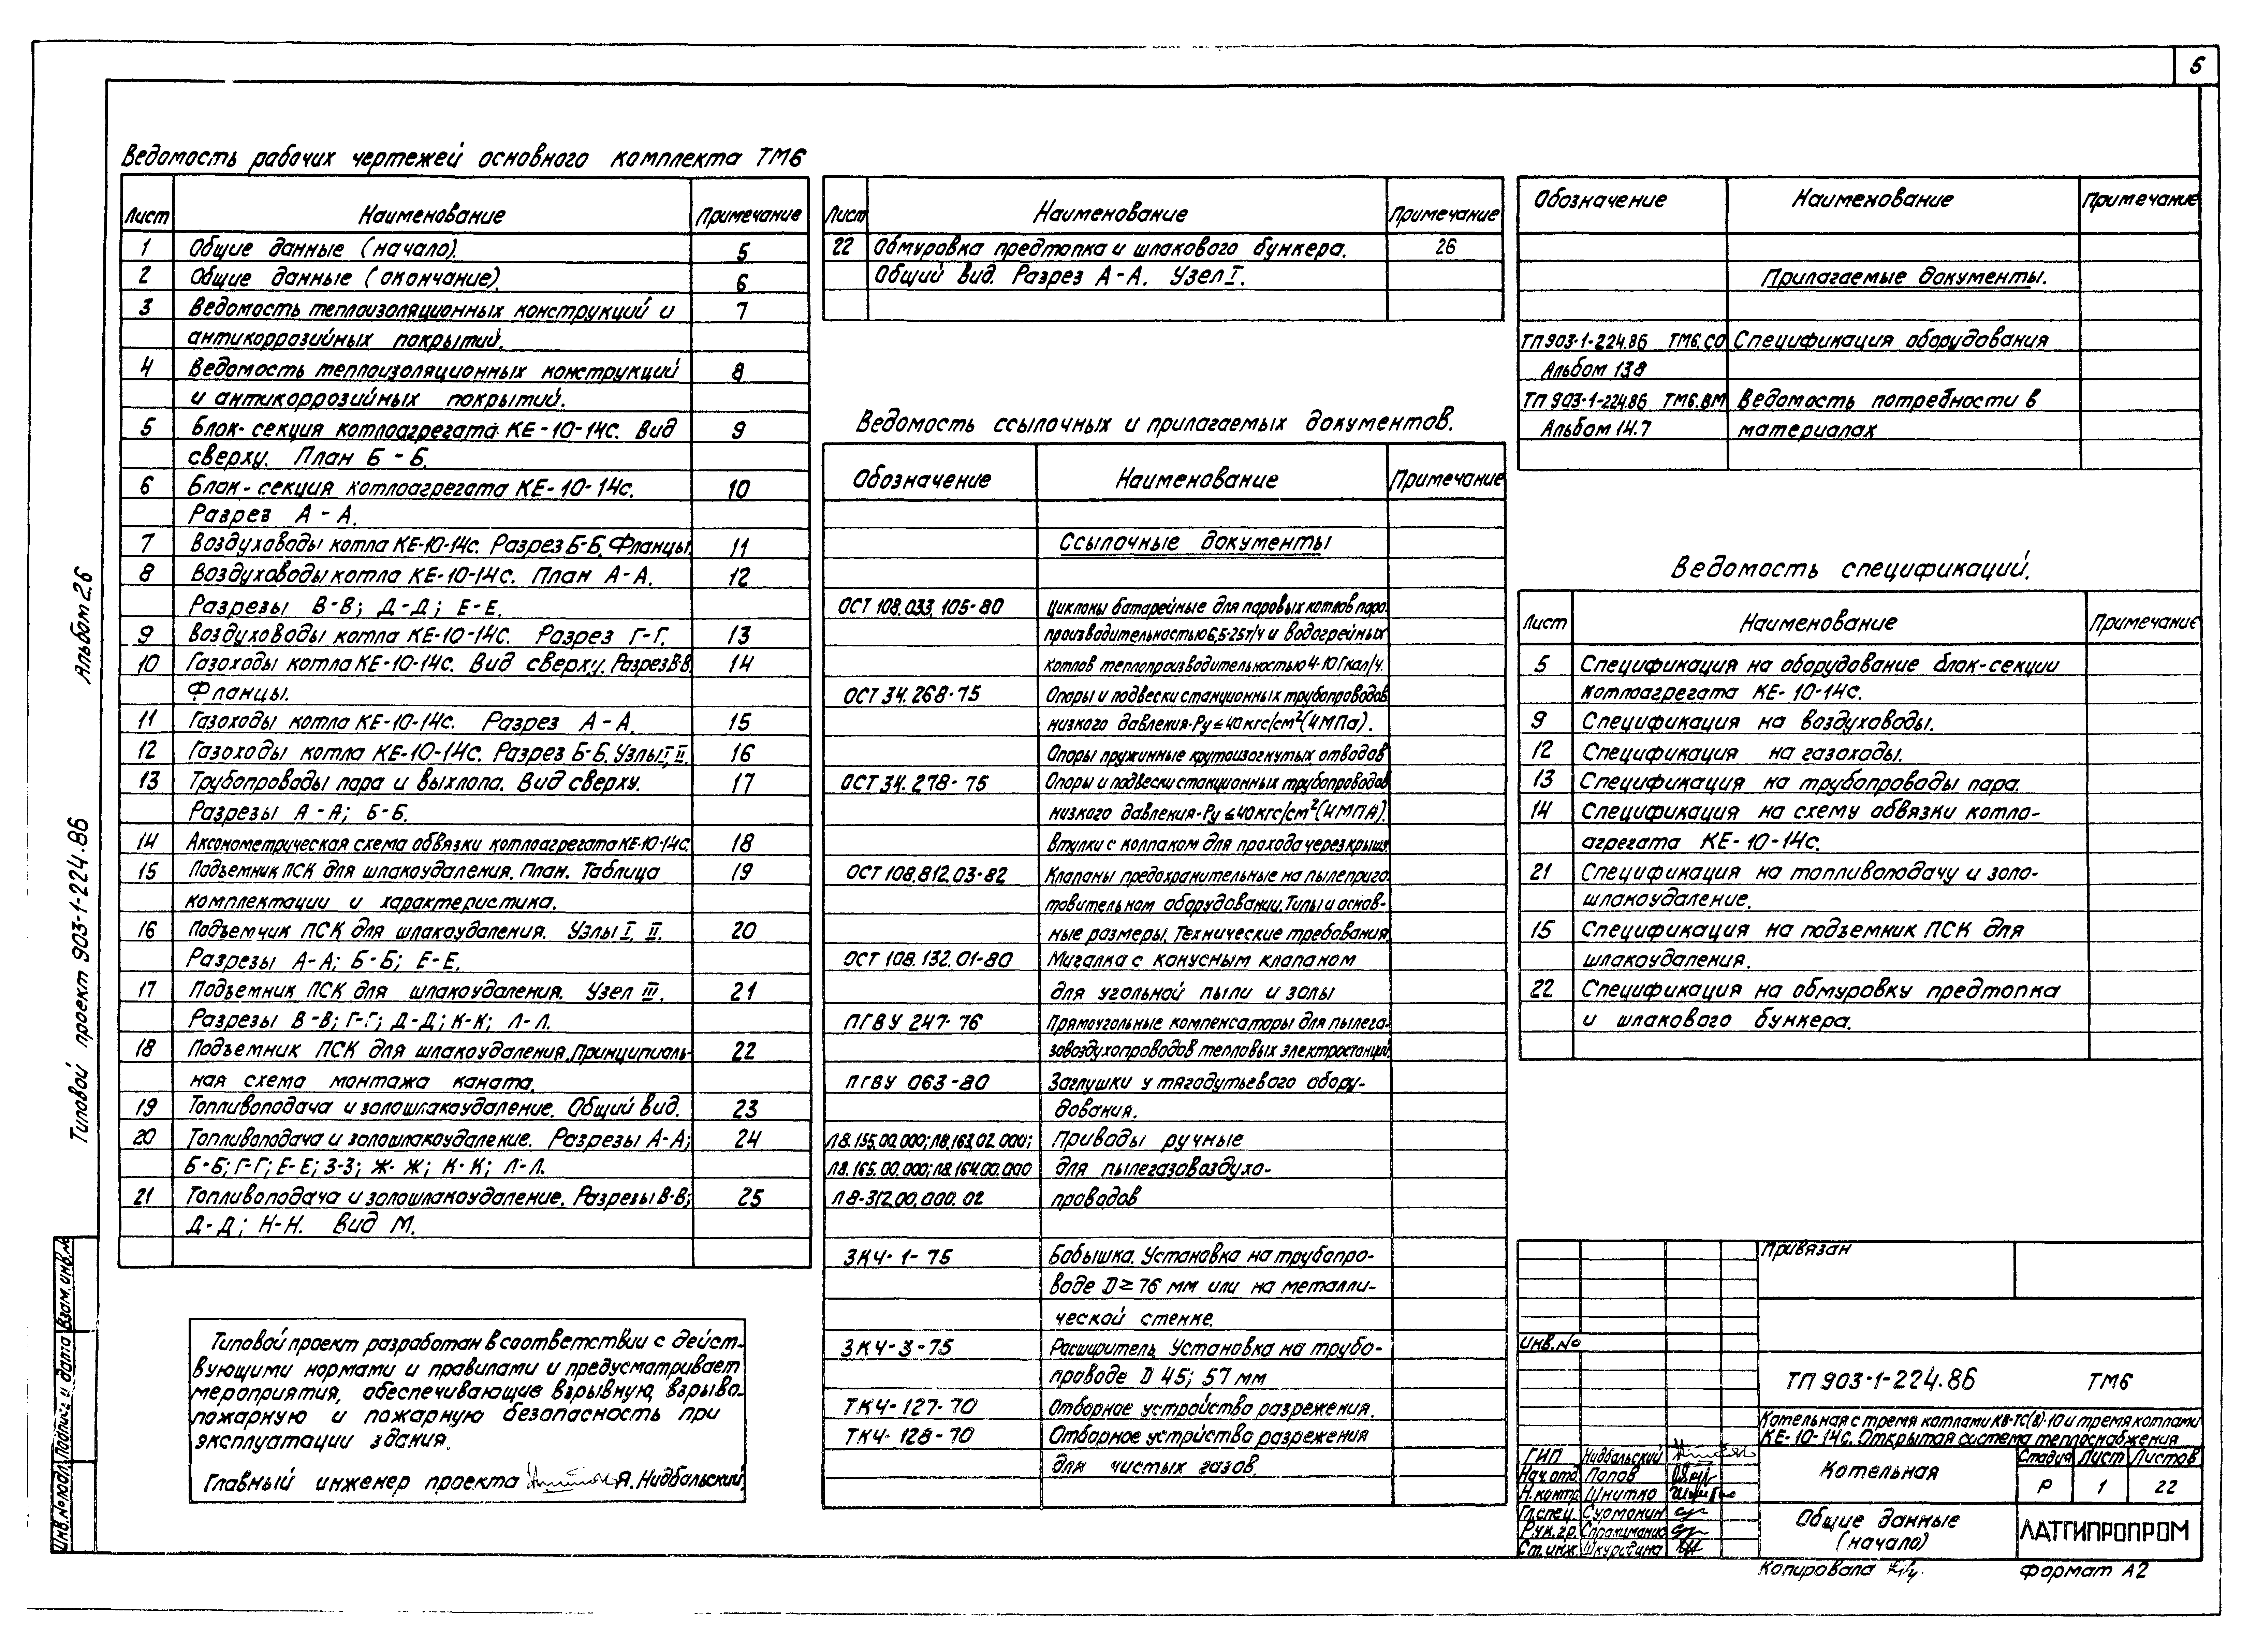 5
Ведомость рабочих чертежей основного комплекта ТМ6
Лист Наименование Примечание
1 Общие данные (начало). 5
2 Общие данные (окончание). 6
3 Ведомость теплоизоляционных конструкций и 7
антикоррозийных покрытий.
4 Ведомость теплоизоляционных конструкций 8
и антикоррозийных покрытий.
5 Блок-секция котлоагрегата КЕ-10-14с. Вид 9
сверху. План Б-Б.
6 Блок-секция котлоагрегата КЕ-10-14с. 10
Разрез А-А.
7 Воздуховоды котла КЕ-10-14с. Разрез Б-Б. Фланцы. 11
8 Воздуховоды котла КЕ-10-14с. План А-А. 12
Разрезы В-В; Д-Д; Е-Е.
9 Воздуховоды котла КЕ-10-14с. Разрез Г-Г. 13
10 Газоходы котла КЕ-10-14с. Вид сверху. Разрез В-В. 14
Фланцы.
11 Газоходы котла КЕ-10-14с. Разрез А-А. 15
12 Газоходы котла КЕ-10-14с. Разрез Б-Б. Узлы I, II. 16
13 Трубопроводы пара и выхлопа. Вид сверху. 17
Разрезы А-А; Б-Б.
14 Аксонометрическая схема обвязки котлоагрегата КЕ-10-14с. 18
15 Подъемник ПСК для шлакоудаления. План. Таблица 19
комплектации и характеристика.
16 Подъемник ПСК для шлакоудаления. Узлы I, II. 20
Разрезы А-А; Б-Б; Е-Е.
17 Подъемник ПСК для шлакоудаления. Узел III. 21
Разрезы В-В; Г-Г; Д-Д; К-К; Л-Л.
18 Подъемник ПСК для шлакоудаления. Принципиаль- 22
ная схема монтажа каната.
19 Топливоподача и золошлакоудаление. Общий вид. 23
20 Топливоподача и золошлакоудаление. Разрезы А-А; 24
Б-Б; Г-Г; Е-Е; З-З; Ж-Ж; К-К; Л-Л.
21 Топливоподача и золошлакоудаление. Разрезы В-В; 25
Д-Д; Н-Н. Вид М.
Типовой проект разработан в соответствии с дейст-
вующими нормами и правилами и предусматривает
мероприятия, обеспечивающие взрывную, взрыво-
пожарную и пожарную безопасность при
эксплуатации здания.
Главный инженер проекта А. Нидбальский
Лист Наименование Примечание
22 Обмуровка предтопка и шлакового бункера. 26
Общий вид. Разрез А-А. Узел I.
Ведомость ссылочных и прилагаемых документов.
Обозначение Наименование Примечание
Ссылочные документы
ОСТ 108.033.105-80 Циклоны батарейные для паровых котлов паро-
производительностью 6,5-25т/ч и водогрейных
котлов теплопроизводительностью 4-10 Гкал/ч.
ОСТ 34.268-75 Опоры и подвески станционных трубопроводов
низкого давления. Ру ≤ 40 кгс/см² (4 МПа).
Опоры пружинные крутоизогнутых отводов
ОСТ 34.278-75 Опоры и подвески станционных трубопроводов
низкого давления. Ру ≤ 40 кгс/см² (4 МПА).
Втулки с колпаком для прохода через крышу
ОСТ 108.812.03-82 Клапаны предохранительные на пылеприго
товительном оборудовании. Типы и основ-
ные размеры. Технические требования.
ОСТ 108.132.01-80 Мигалка с конусным клапаном
для угольной пыли и золы
ПГВУ 247-76 Прямоугольные компенсаторы для пылега-
зовоздухопроводов тепловых электростанций
ПГВУ 063-80 Заглушки у тягодутьевого обору-
дования.
Л8.155.00.000; Л8.163.02.000; Приводы ручные
Л8.165.00.000; Л8.164.00.000 для пылегазовоздухо-
Л8-312.00.000.02 проводов
ЗК4-1-75 Бобышка. Установка на трубопро-
воде D ≥ 76 мм или на металли-
ческой стенке.
ЗК4-3-75 Расширитель. Установка на трубо-
проводе D 45; 57 мм
ТК4-127-70 Отборное устройство разрежения.
ТК4-128-70 Отборное устрйство разрежения
для чистых газов.
Обозначение Наименование Примечание
Прилагаемые документы.
ТП 903-1-224.86 ТМ6.СО Спецификация оборудования
Альбом 13.8
ТП 903-1-224.86 ТМ6.ВМ Ведомость потребности в
Альбом 14.7 материалах
Ведомость спецификаций.
Лист Наименование Примечание
5 Спецификация на оборудование блок-секции
котлоагрегата КЕ-10-14с.
9 Спецификация на воздуховоды.
12 Спецификация на газоходы.
13 Спецификация на трубопроводы пара.
14 Спецификация на схему обвязки котло-
агрегата КЕ-10-14с.
21 Спецификация на топливоподачу и золо-
шлакоудаление.
15 Спецификация на подъемник ПСК для
шлакоудаления.
22 Спецификация на обмуровку предтопка
и шлакового бункера.
Привязан
Инв.№
ТП 903-1-224.86 ТМ6
Котельная с тремя котлами КВ-ТС(В)-10 и тремя котлами
КЕ-10-14с. Открытая система теплоснабжения
ГИП Нидбальский
Нач.отд Попов
Н.контр. Шнитко
Гл.спец. Сурмонин
Рук.гр.
Ст.инж. Шкуродина
Котельная
Стадия Лист Листов
Р 1 22
Общие данные
(начало)
ЛАТГИПРОПРОМ
Копировала
Формат А2
Типовой проект 903-1-224.86 Альбом 2.6
Инв.№ подл. Подпись и дата Взам.инв.№